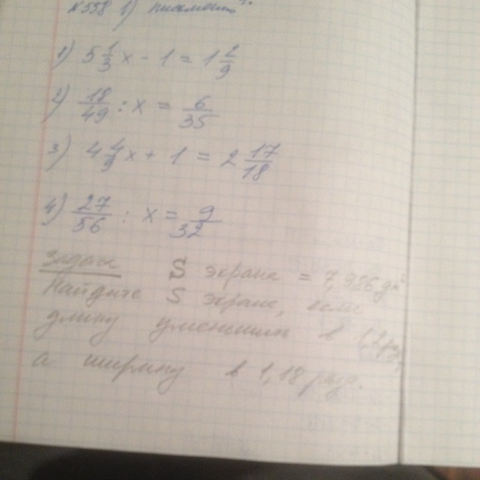 N558 1) письменно
1) 5 1/3 x - 1 = 1 2/9
2) 18/49 : x = 6/35
3) 4 4/9 x + 1 = 2 17/18
4) 27/56 : x = 9/32
Задача S экрана = 7,986 дм²
Найдите S экрана, если
длину уменьшить в
а ширину в 1,18 раз.